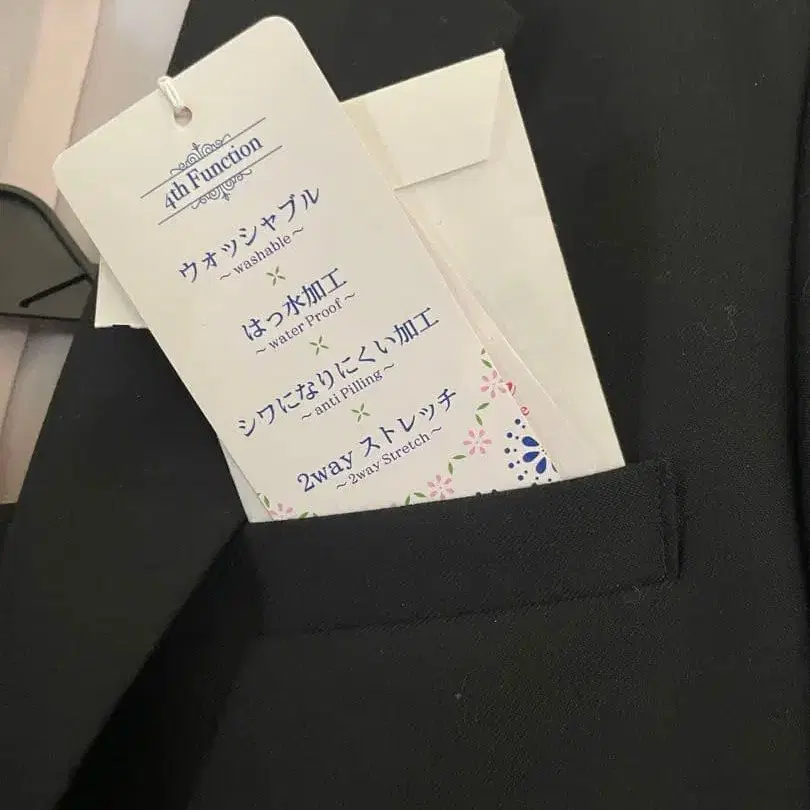 4th Function
ウォッシャブル
～washable～
×
はっ水加工
～water Proof～
×
シワになりにくい加工
～anti Pilling～
×
2way ストレッチ
～2way Stretch～